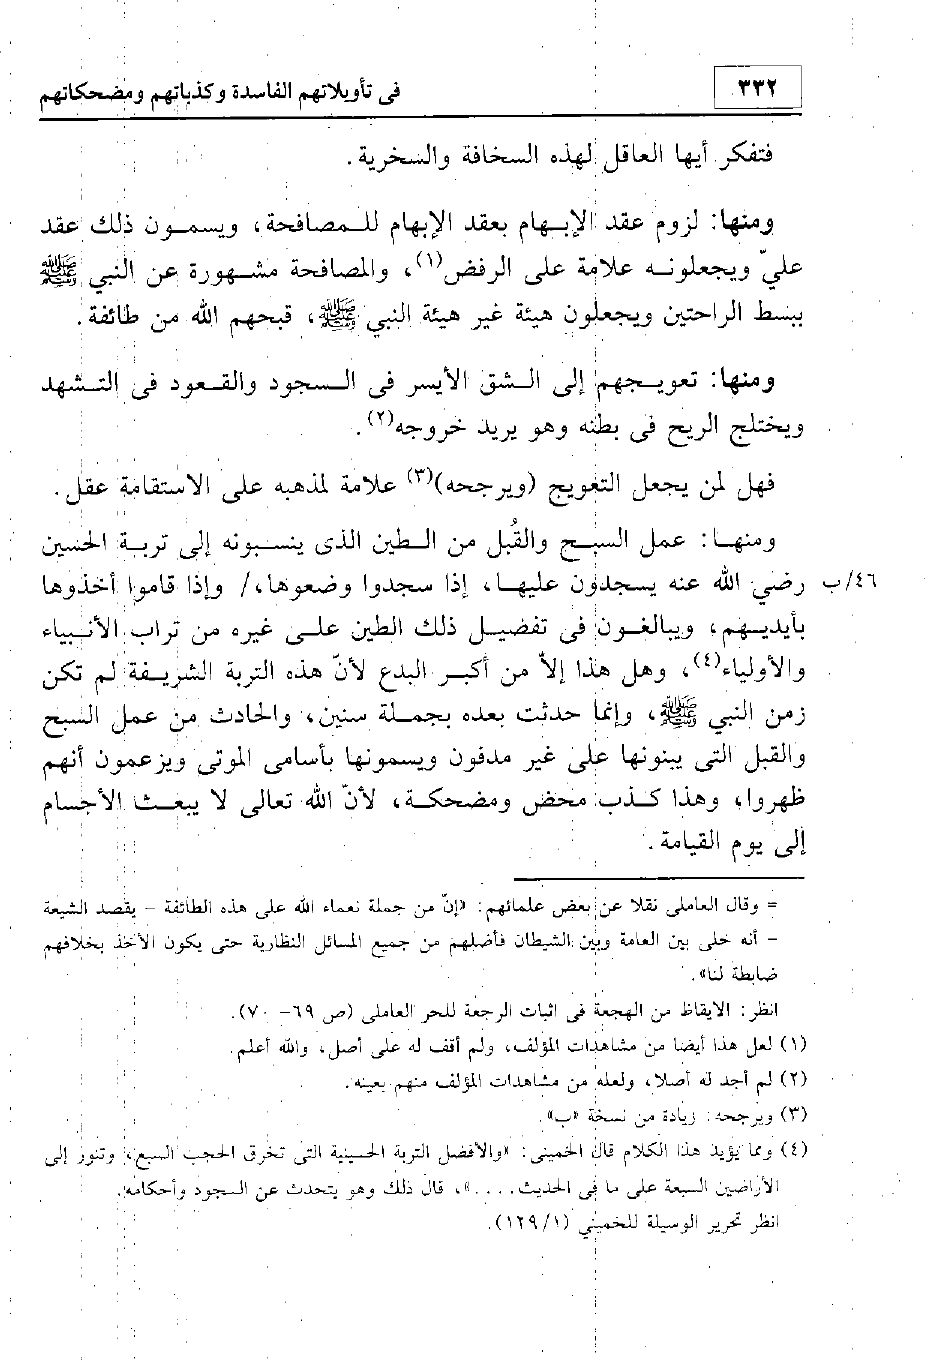 ٣٣٢
في تأويلاتهم الفاسدة وكذباتهم ومضحكاتهم
فتفكر أيها العاقل لهذه السخافة والسخرية .
ومنها: لزوم عقد الإبهام بعقد الإبهام للمصافحة، ويسمون ذلك عقد
عليّ ويجعلونه علامة على الرفض(١)، والمصافحة مشهورة عن النبي ﷺ
ببسط الراحتين ويجعلون هيئة غير هيئة النبي ﷺ، قبحهم الله من طائفة .
ومنها: تعويجهم إلى الشق الأيسر فى السجود والقعود فى التشهد
ويختلج الريح فى بطنه وهو يريد خروجه(٢).
فهل لمن يجعل التعويج (ويرجحه)(٣) علامة لمذهبه على الاستقامة عقل .
ومنها: عمل السبح والقُبل من الطين الذى ينسبونه إلى تربة الحسين
رضي الله عنه يسجدون عليها، إذا سجدوا وضعوها،/ وإذا قاموا أخذوها ٤٦/ب
بأيديهم، ويبالغون فى تفضيل ذلك الطين على غيره من تراب الأنبياء
والأولياء(٤)، وهل هذا إلاّ من أكبر البدع لأنّ هذه التربة الشريفة لم تكن
زمن النبي ﷺ، وإنما حدثت بعده بجملة سنين، والحادث من عمل السبح
والقبل التى يبنونها على غير مدفون ويسمونها بأسامى الموتى ويزعمون أنهم
ظهروا، وهذا كذب محض ومضحكة، لأنّ الله تعالى لا يبعث الأجسام
إلى يوم القيامة .
= وقال العاملى نقلا عن بعض علمائهم: «إنّ من جملة نعماء الله على هذه الطائفة - يقصد الشيعة
- أنه خلى بين العامة وبين الشيطان فأضلهم من جميع المسائل النظارية حتى يكون الأخذ بخلافهم
ضابطة لنا».
انظر: الايقاظ من الهجعة فى اثبات الرجعة للحر العاملى (ص ٦٩- ٧٠).
(١) لعل هذا أيضا من مشاهدات المؤلف، ولم أقف له على أصل، والله أعلم.
(٢) لم أجد له أصلا، ولعله من مشاهدات المؤلف منهم بعينه.
(٣) ويرجحه: زيادة من نسخة «ب».
(٤) ومما يؤيد هذا الكلام قال الخمينى: «والأفضل التربة الحسينية التى تخرق الحجب السبع، وتنور إلى
الأراضين السبعة على ما فى الحديث....»، قال ذلك وهو يتحدث عن السجود وأحكامه.
انظر تحرير الوسيلة للخميني (١/١٢٩).